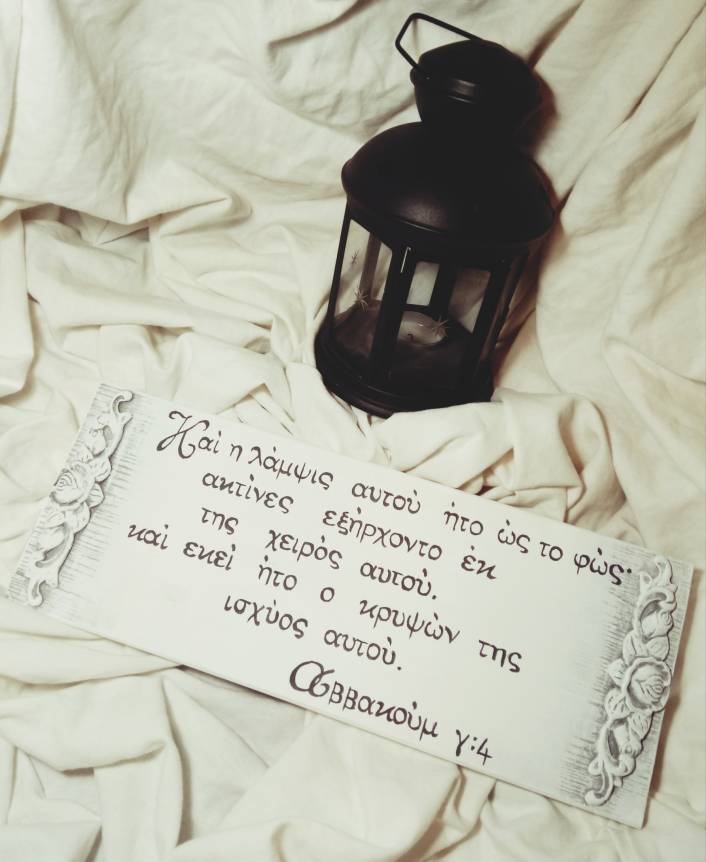 Και η λάμψις αυτού ήτο ὡς το φώς·
ακτίνες εξήρχοντο ἐκ
της χειρός αυτού.
καὶ εκεί ήτο ο κρυψὼν της
ισχύος αυτού.
Αββακούμ γ:4